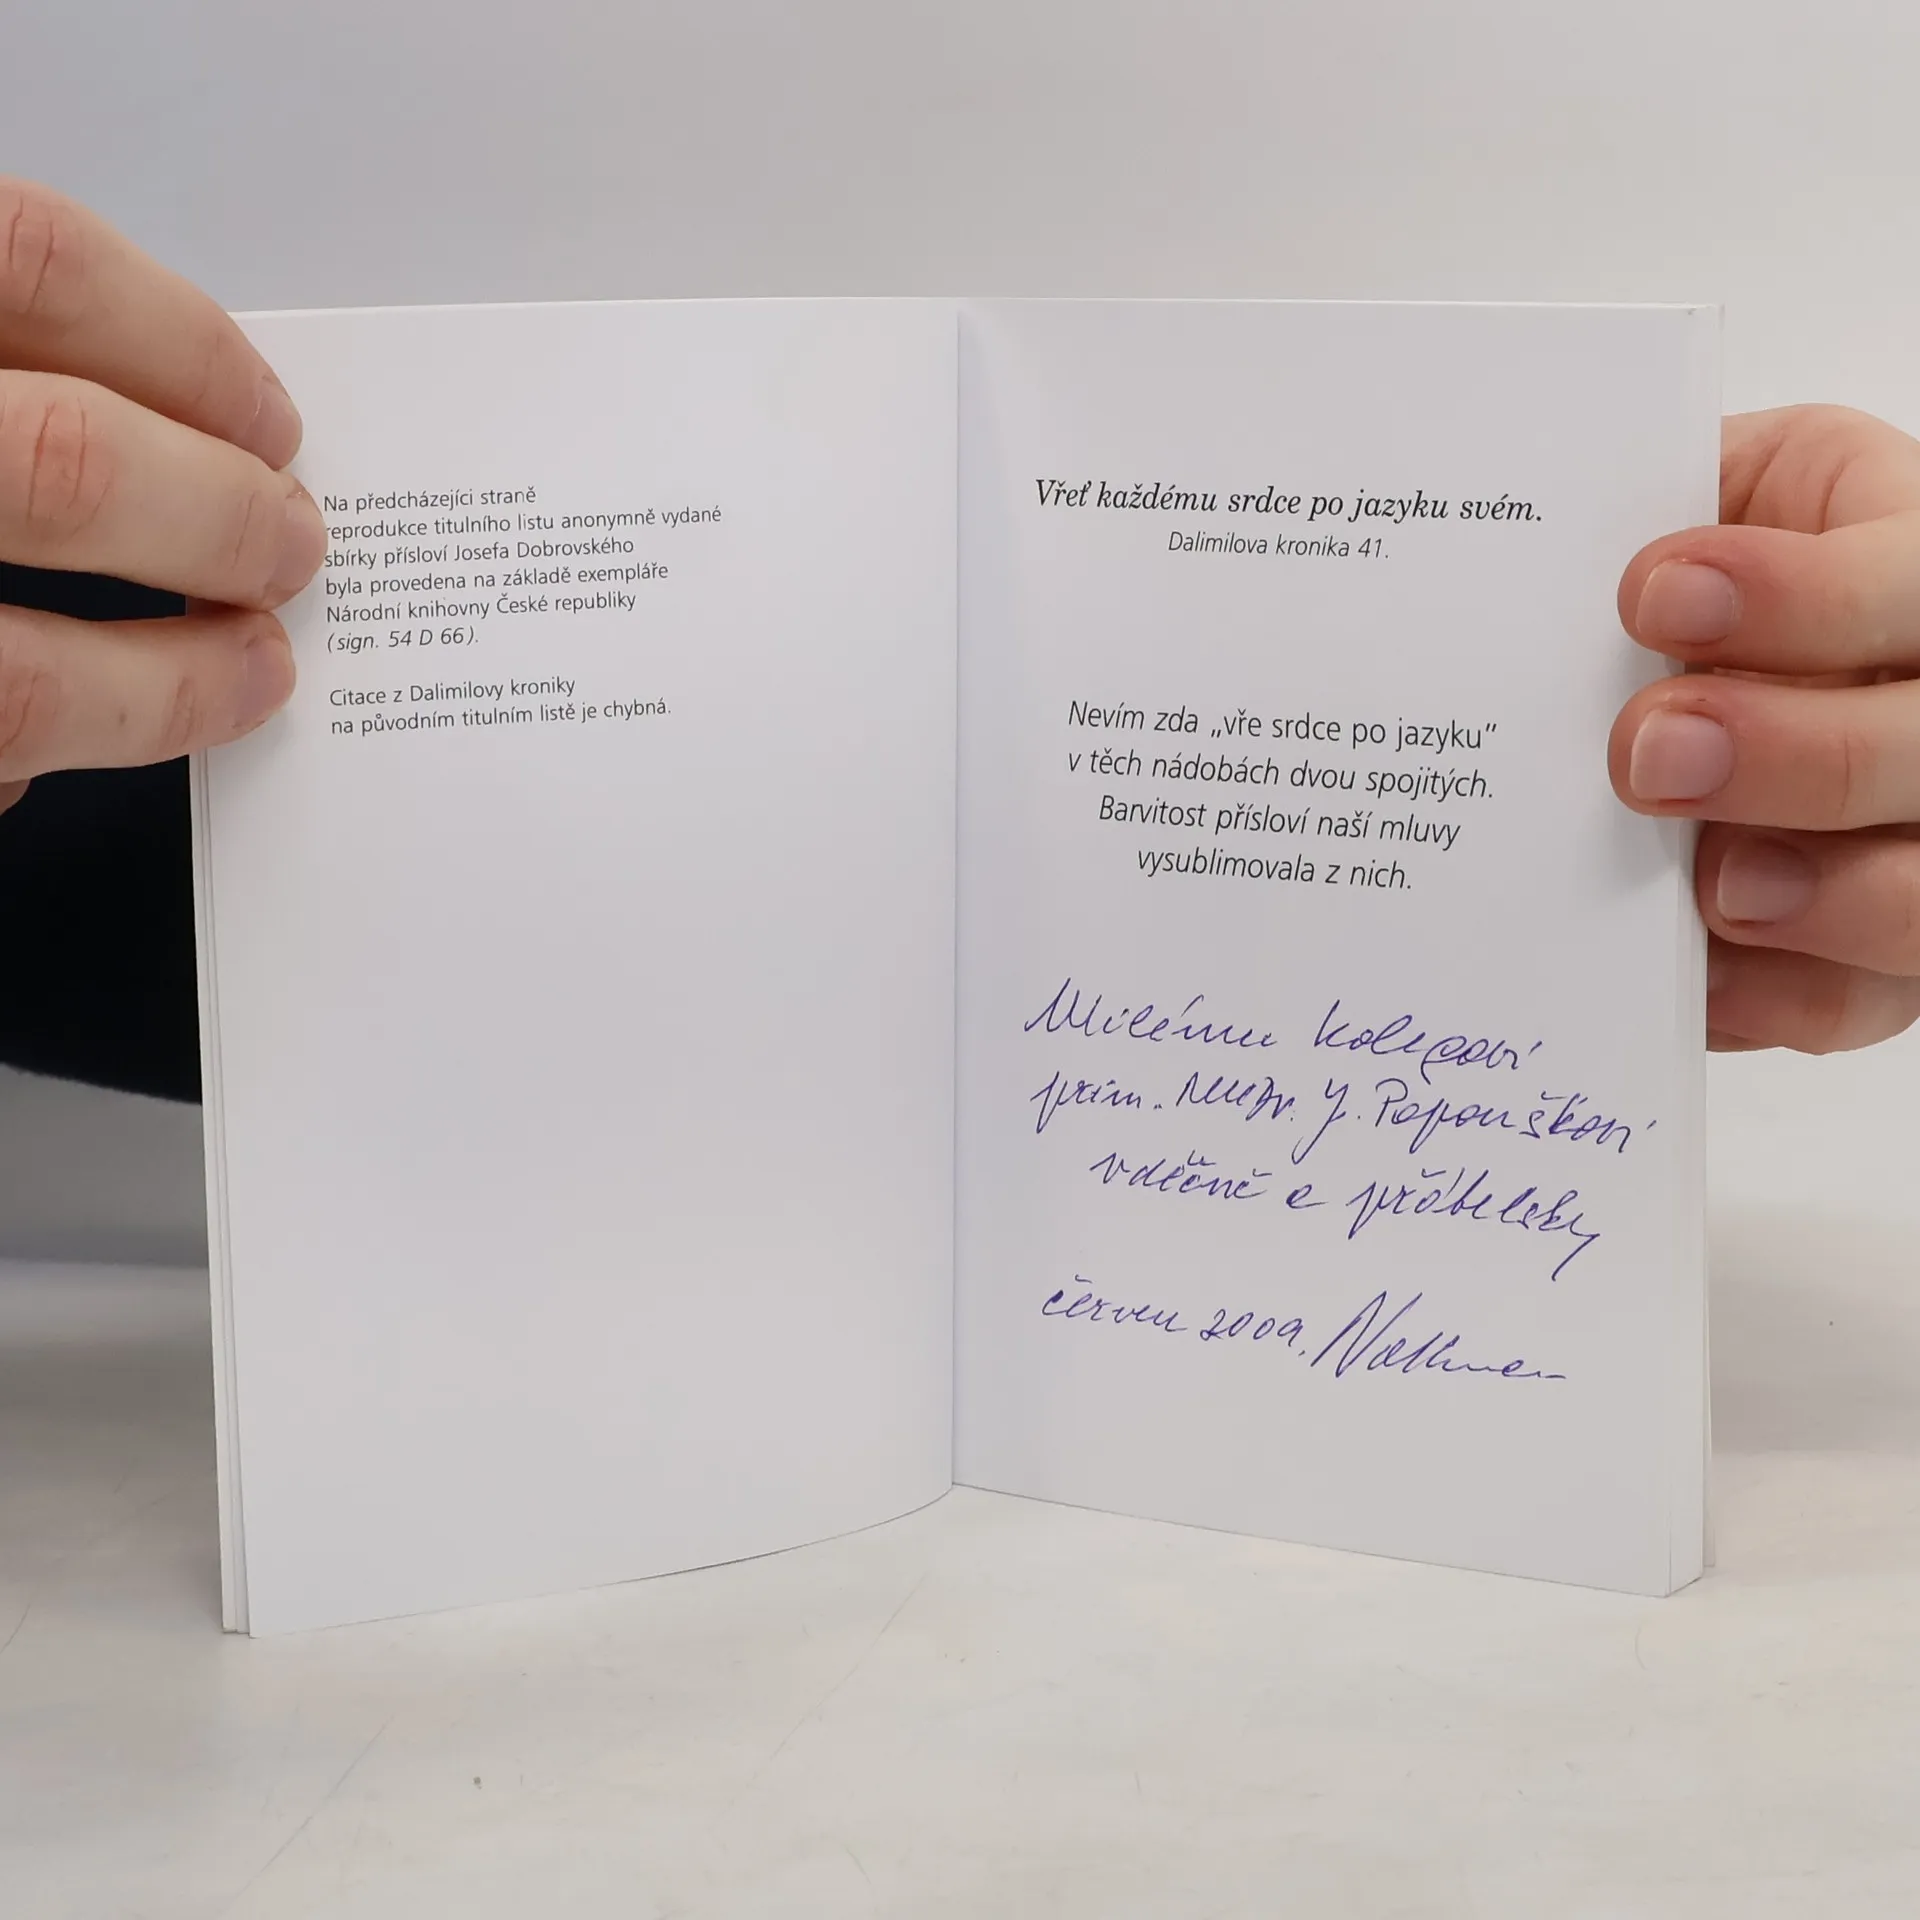 Na předcházející straně
reprodukce titulního listu anonymně vydané
sbírky přísloví Josefa Dobrovského
byla provedena na základě exempláře
Národní knihovny České republiky
(sign. 54 D 66).
Citace z Dalimilovy kroniky
na původním titulním listě je chybná.
Vřeť každému srdce po jazyku svém.
Dalimilova kronika 41.
Nevím zda „vře srdce po jazyku”
v těch nádobách dvou spojitých.
Barvitost přísloví naší mluvy
vysublimovala z nich.
Milému kolegovi
prim. MUDr. J. Papouškovi
vděčně a přátelsky
červen 2009.